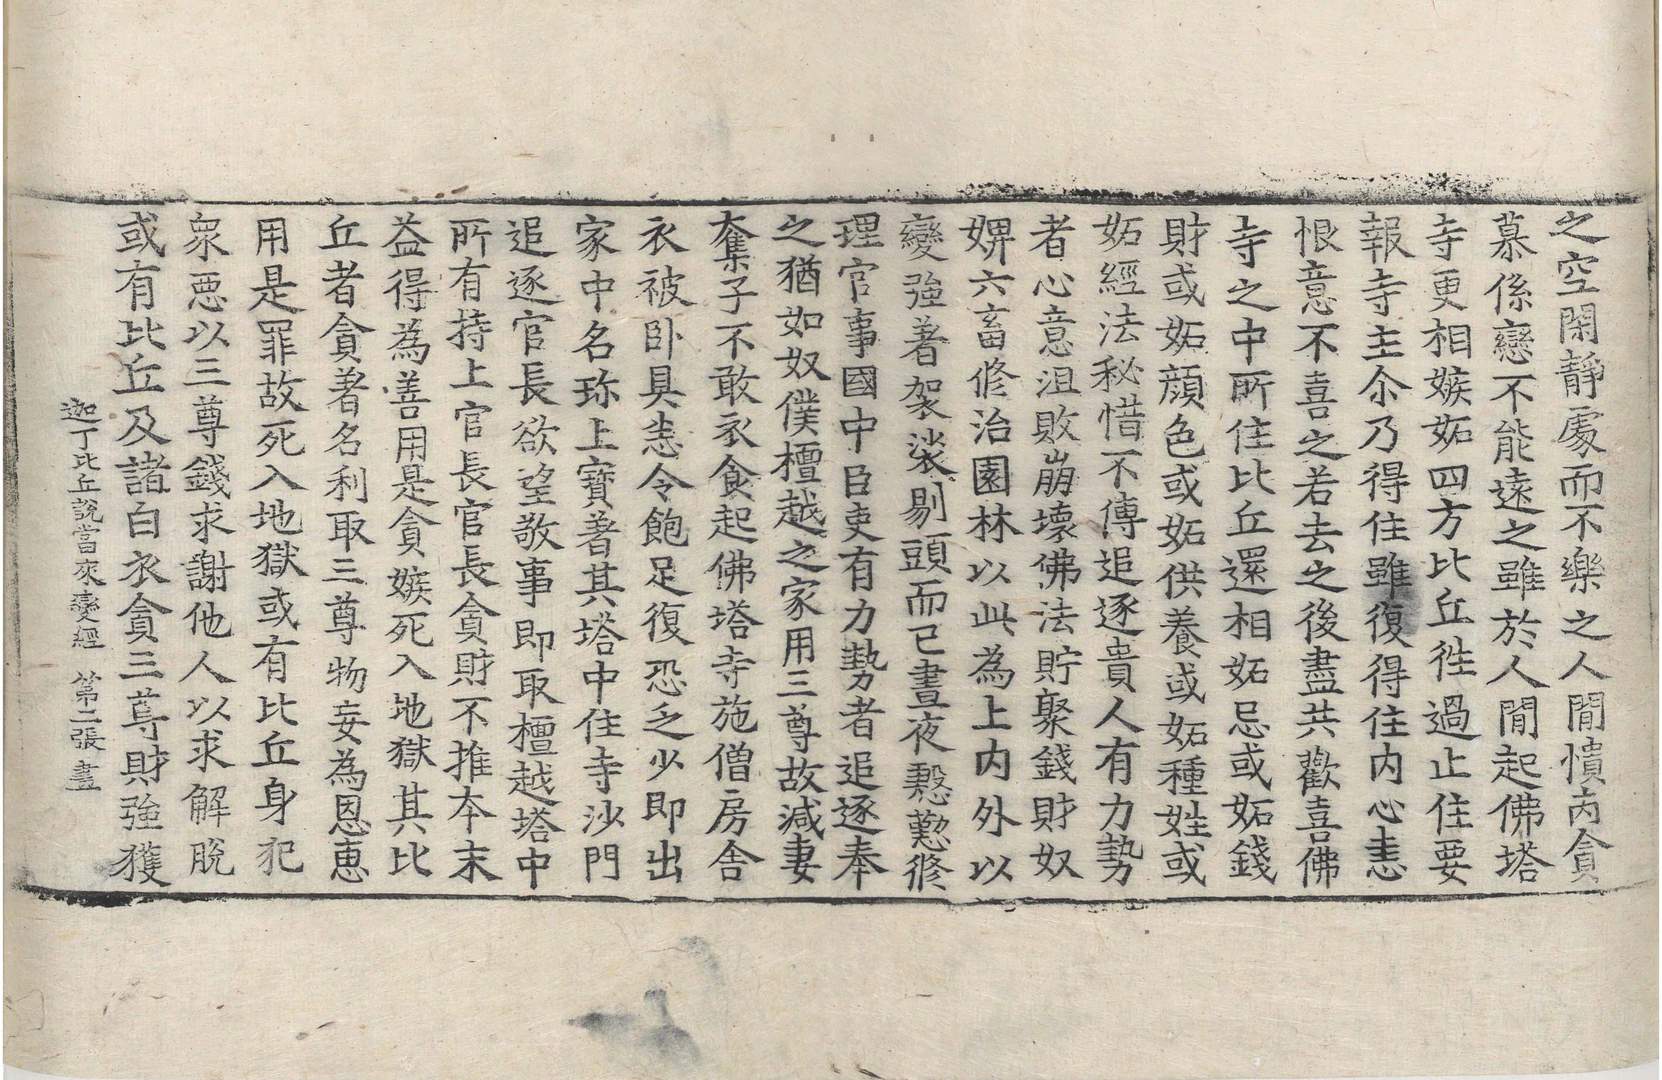 之空閑靜處而不樂之人間憒丙貪
慕係戀不能遠之雖於人間起佛塔
寺更相嫉妬四方比丘徃過止住要
報寺主尒乃得住雖復得住内心恚
恨意不喜之若去之後盡共歡喜佛
寺之中所住比丘還相妬忌或妬錢
財或妬顔色或妬供養或妬種姓或
妬經法秘惜不傳追逐貴人有力勢
者心意沮敗崩壞佛法貯聚錢財奴
婢六畜修治園林以此為上内外以
變強著袈裟剔頭而已晝夜慇懃修
理官事國中臣吏有力勢者追逐奉
之猶如奴僕檀越之家用三尊故減妻
奪子不敢衣食起佛塔寺施僧房舎
衣被卧具恙令飽足復恐乏少即出
家中名珎上寶著其塔中住寺沙門
追逐官長欲望敬事即取檀越塔中
所有持上官長官長貪財不推本末
益得為善用是貪嫉死入地獄其比
丘者貪著名利取三尊物妄為恩惠
用是罪故死入地獄或有比丘身犯
衆惡以三尊錢求謝他人以求解脫
或有比丘及諸白衣貪三尊財強獲
迦丁比丘說當來變經 第二張 畫